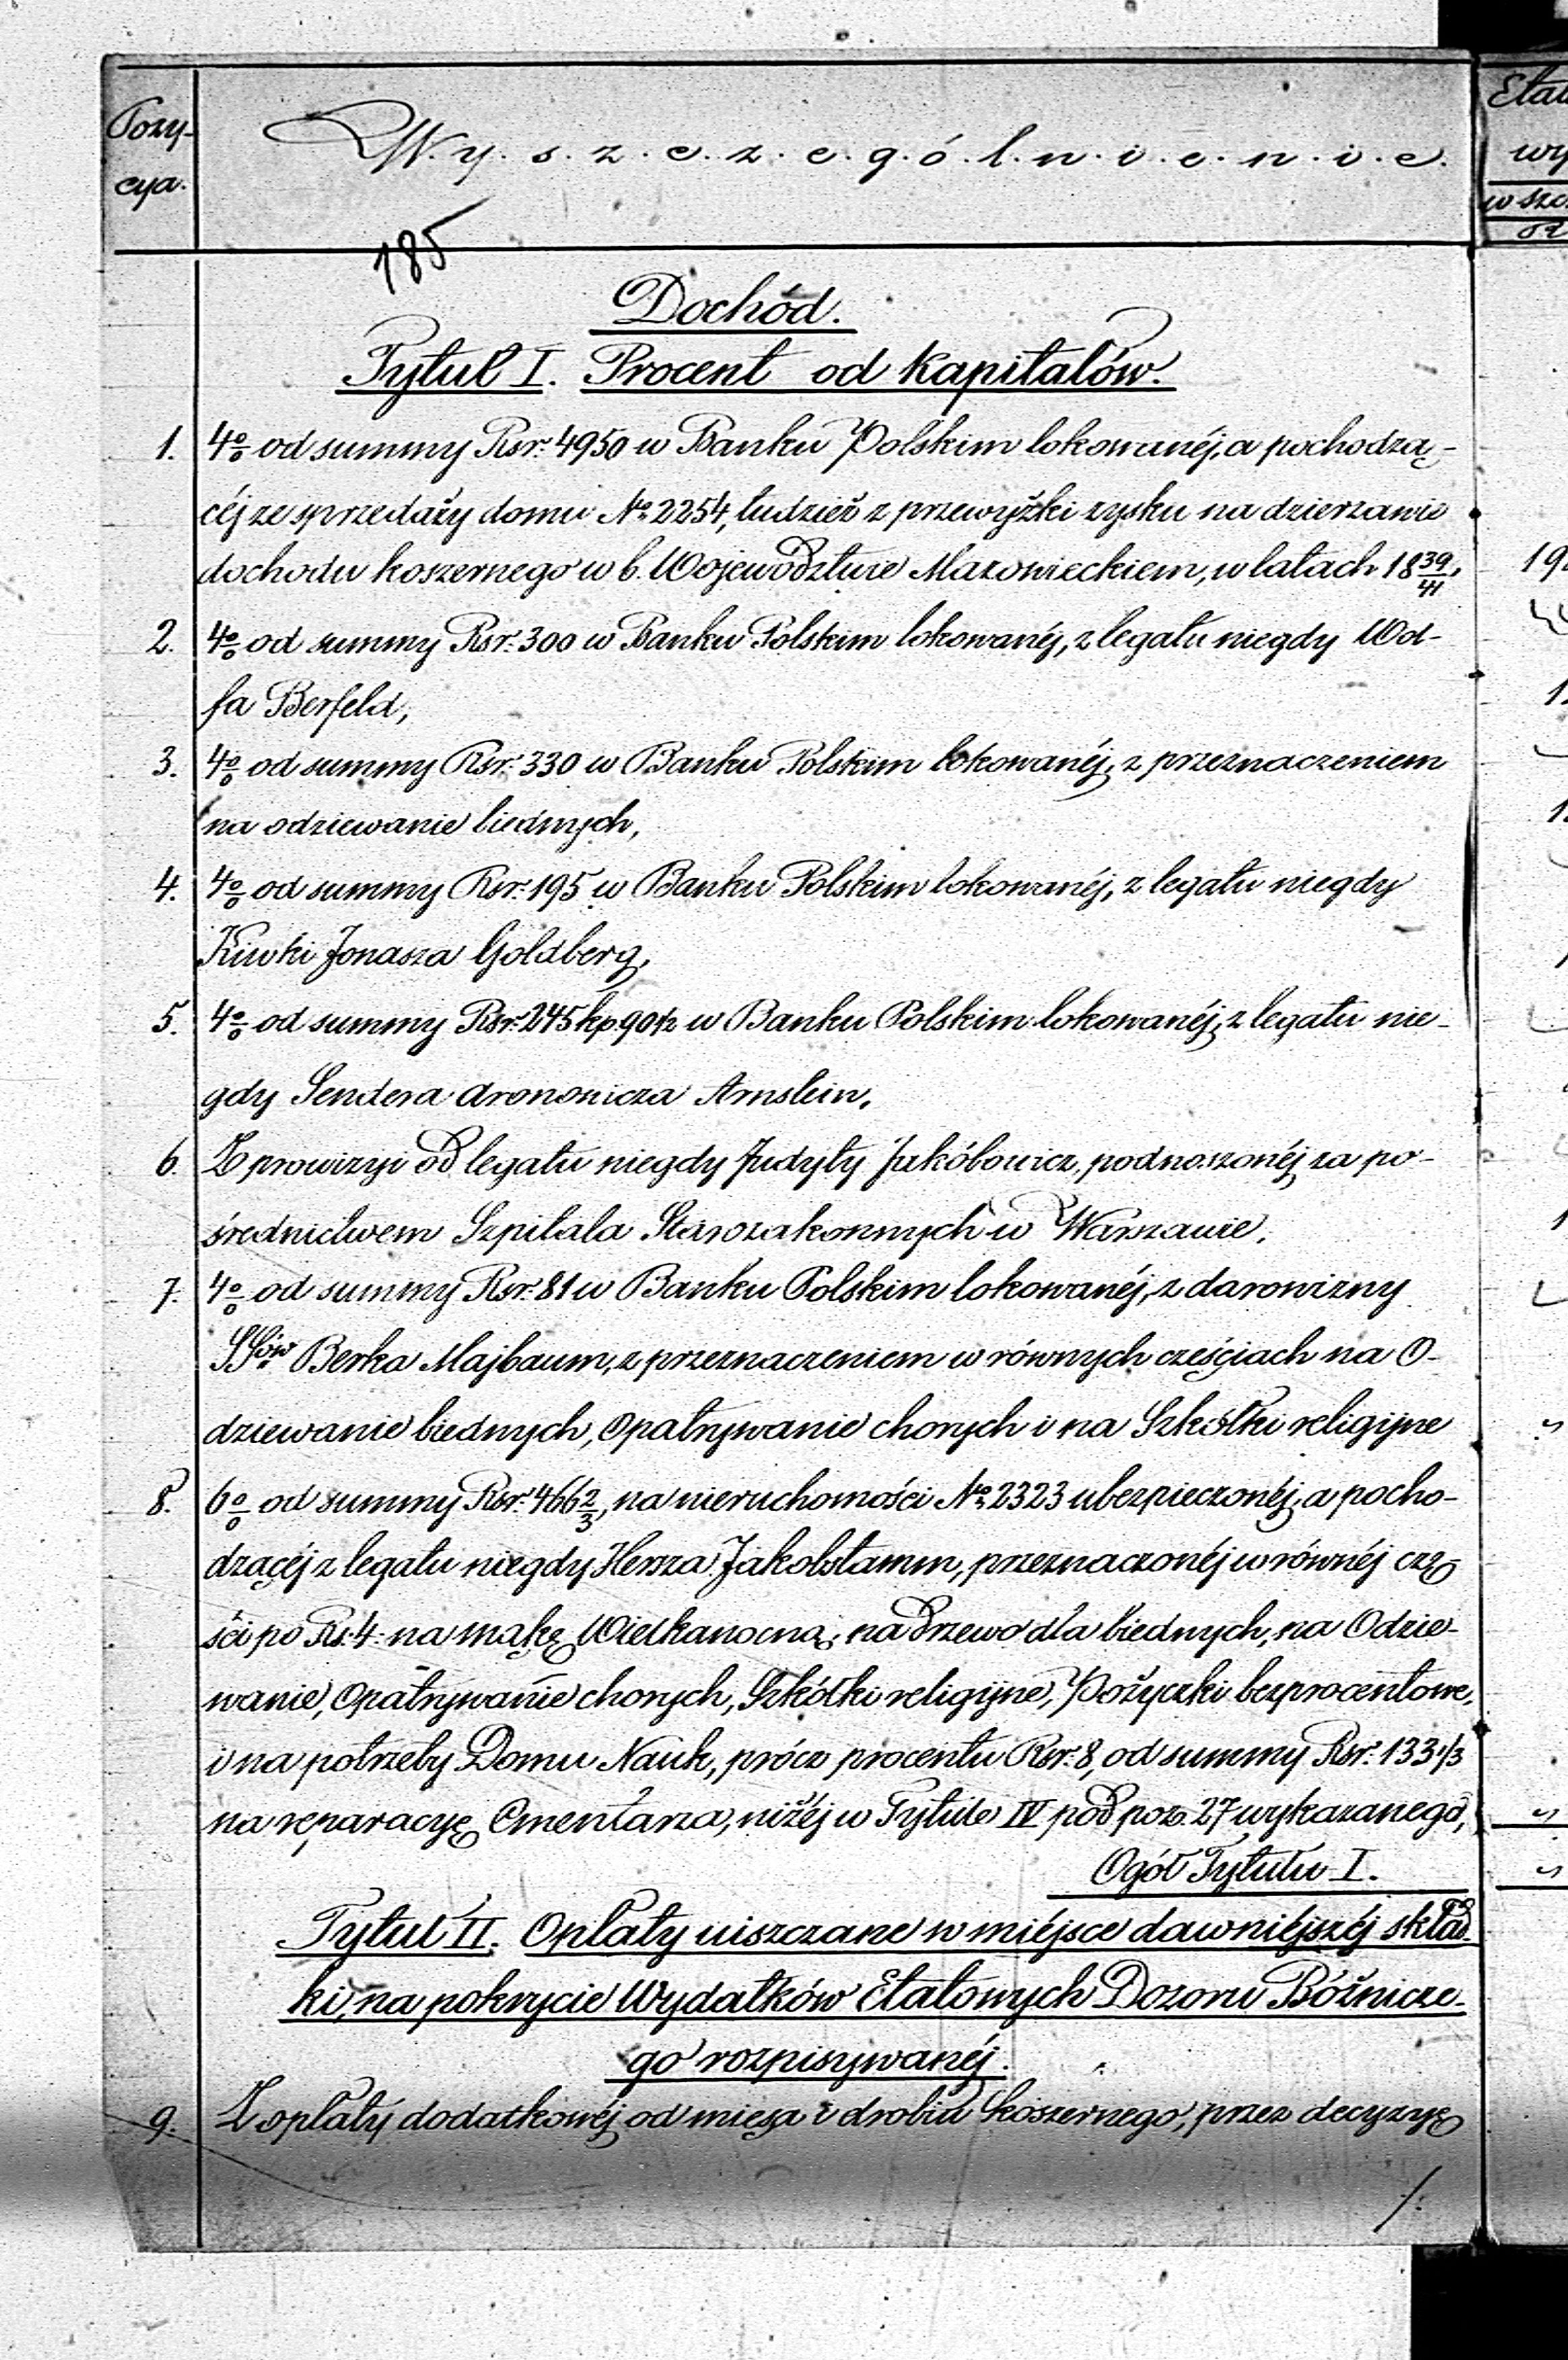 Pozy-
cya.
W.y.s.z.c.z.e.g.ó.l.n.i.e.n.i.e.
185
Dochód.
Tytuł I. Procent od kapitałów.
1. 4% od summy Rsr. 4950 w Banku Polskim lokowanéj, a pochodzą-
céj ze sprzedaży domu No. 2254, tudzież z przewyżki zysku na dzierzawie
dochodu koszernego w b. Województwie Mazowieckiem, w latach 18 39/41,
2. 4% od summy Rsr. 300 w Banku Polskim lokowanéj, z legatu niegdy Wol-
fa Berfeld,
3. 4% od summy Rsr. 330 w Banku Polskim lokowanéj, z przeznaczeniem
na odziewanie biednych,
4. 4% od summy Rsr. 195 w Banku Polskim lokowanéj, z legatu niegdy
Kiwki Jonasza Goldberg,
5. 4% od summy Rsr. 245 kp. 90 1/2 w Banku Polskim lokowanéj, z legatu nie-
gdy Sendera Aronowicza Arnstein,
6. Z prowizyi od legatu niegdy Judyty Jakóbowicz, podnoszonéj za po-
średnictwem Szpitala Starozakonnych w Warszawie,
7. 4% od summy Rsr. 81 w Banku Polskim lokowanéj, z darowizny
SSów Berka Majbaum, z przeznaczeniem w równych częściach na O-
dziewanie biednych, Opatrywanie chorych i na Szkółki religijne
8. 6% od summy Rsr. 466 2/3, na nieruchomości No. 2323 ubezpieczonéj, a pocho-
dzącéj z legatu niegdy Hersza Jakobstamm, przeznaczonéj w równéj czę
ści po Rs. 4. na mąkę Wielkanocną, na drzewo dla biednych, na Odzie-
wanie, Opatrywanie chorych, Szkółki religijne, Pożyczki bezprocentowe,
i na potrzeby Domu Nauk, prócz procentu Rsr. 8, od summy Rsr. 133 1/3
na reparacyę Cmentarza, niżéj w Tytule IV pod poz. 27 wykazanego,
Ogół Tytułu I.
Tytuł II. Opłaty uiszczane w miéjsce dawniéjszéj skład-
ki, na pokrycie Wydatków Etatowych Dozoru Bóżnicze-
go rozpisywanéj.
9. Z opłaty dodatkowéj od mięsa i drobiu koszernego, przez decyzyę
/.